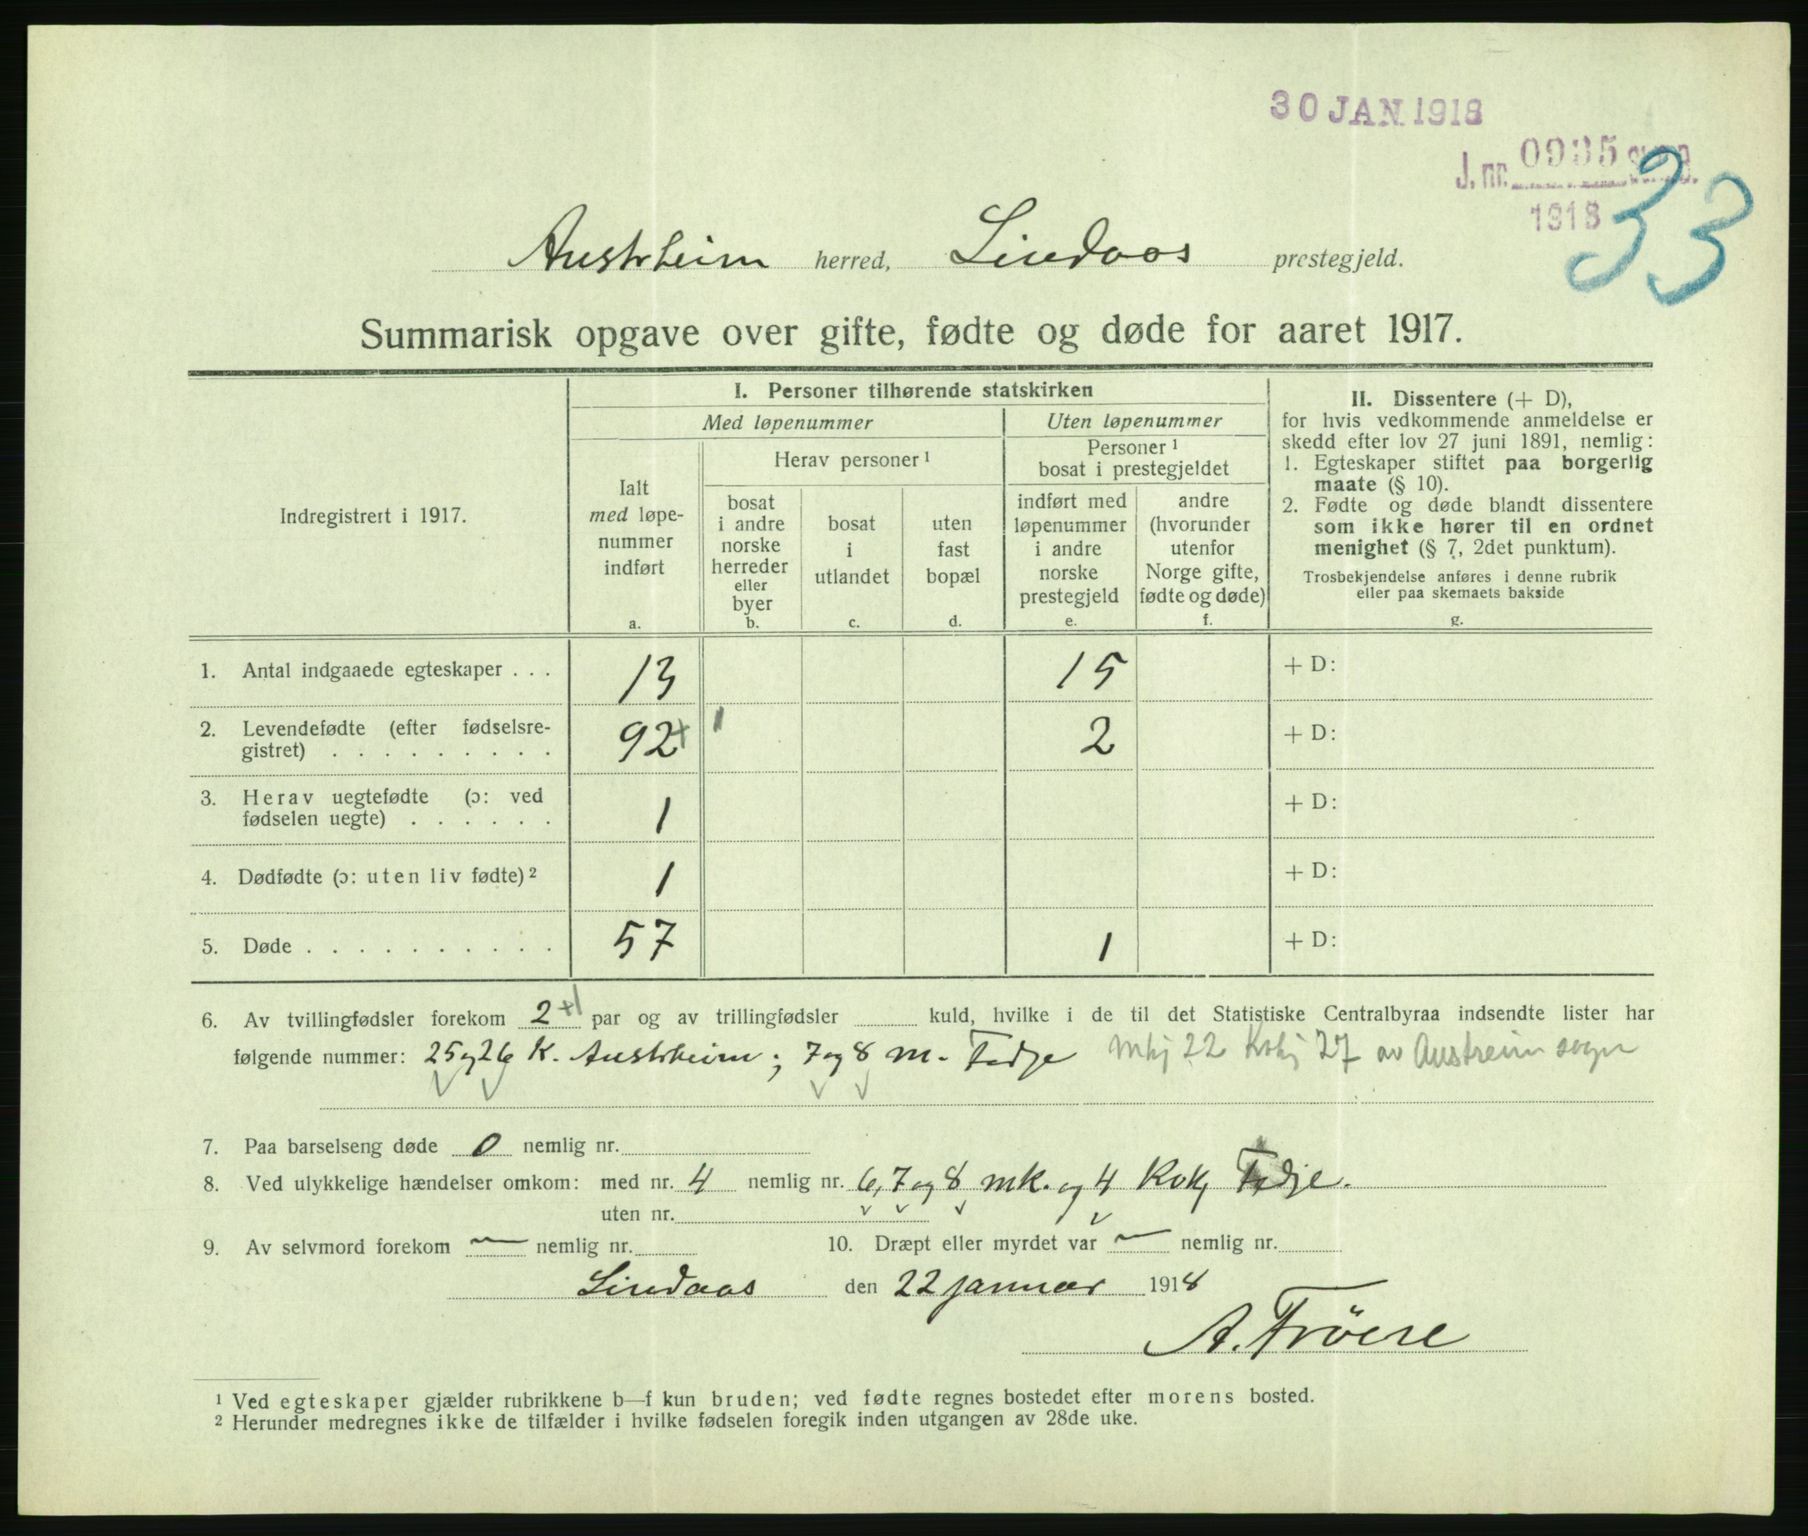 30 JAN 1918
J. nr. 0935
1918
33
Austrheim herred, Lindaas prestegjeld.
Summarisk opgave over gifte, fødte og døde for aaret 1917.
Indregistrert i 1917.
I. Personer tilhørende statskirken
Med løpenummer
Uten løpenummer
Ialt
med løpe-
nummer
indført
a.
Herav personer ¹
bosat
i andre
norske
herreder
eller
byer
b.
bosat
i
utlandet
c.
uten
fast
bopæl
d.
Personer ¹
bosat i prestegjeldet
indført med
løpenummer
i andre
norske
prestegjeld
e.
andre
(hvorunder
utenfor
Norge gifte,
fødte og døde)
f.
II. Dissentere (+ D),
for hvis vedkommende anmeldelse er
skedd efter lov 27 juni 1891, nemlig:
1. Egteskaper stiftet paa borgerlig
maate (§ 10).
2. Fødte og døde blandt dissentere
som ikke hører til en ordnet
menighet (§ 7, 2det punktum).
Trosbekjendelse anføres i denne rubrik
eller paa skemaets bakside
g.
1. Antal indgaaede egteskaper . . . 13 15 + D:
2. Levendefødte (efter fødselsre-
gistret) . . . . . . . . . 92+ 1 2 + D:
3. Herav uegtefødte (ɔ: ved
fødselen uegte) . . . . . . 1 + D:
4. Dødfødte (ɔ: uten liv fødte) ² 1 + D:
5. Døde . . . . . . . . . . 57 1 + D:
6. Av tvillingfødsler forekom 2 +1 par og av trillingfødsler kuld, hvilke i de til det Statistiske Centralbyraa indsendte lister har
følgende nummer: 25 og 26 K. Austrheim; 7 og 8 m. Fedje Mkj 22 Kvkj 27 av Austreim sogn
7. Paa barselseng døde 0 nemlig nr.
8. Ved ulykkelige hændelser omkom: med nr. 4 nemlig nr. 6, 7 og 8 mk. og 4 Kvkj Fedje.
uten nr.
9. Av selvmord forekom — nemlig nr. 10. Dræpt eller myrdet var — nemlig nr.
Lindaas den 22 januar 1918
A. Fröere
¹ Ved egteskaper gjælder rubrikkene b—f kun bruden; ved fødte regnes bostedet efter morens bosted.
² Herunder medregnes ikke de tilfælder i hvilke fødselen foregik inden utgangen av 28de uke.